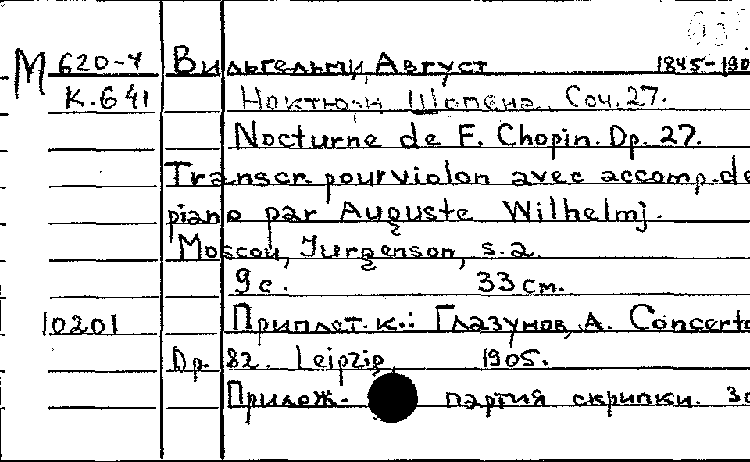 М 620-4 Вильгельми, Август 1845-190
К.641 Ноктюрн Шопена. Соч. 27.
Nocturne de F. Chopin. Op. 27.
Transcr. pour violon avec accomp. de
piano par Auguste Wilhelmj.
Moscou, Jurgenson, s.a.
9 с. 33 см.
10201 Приплет. к.: Глазунов, А. Concerto
Op. 82. Leipzig 1905.
Прилож. партия скрипки. 3с